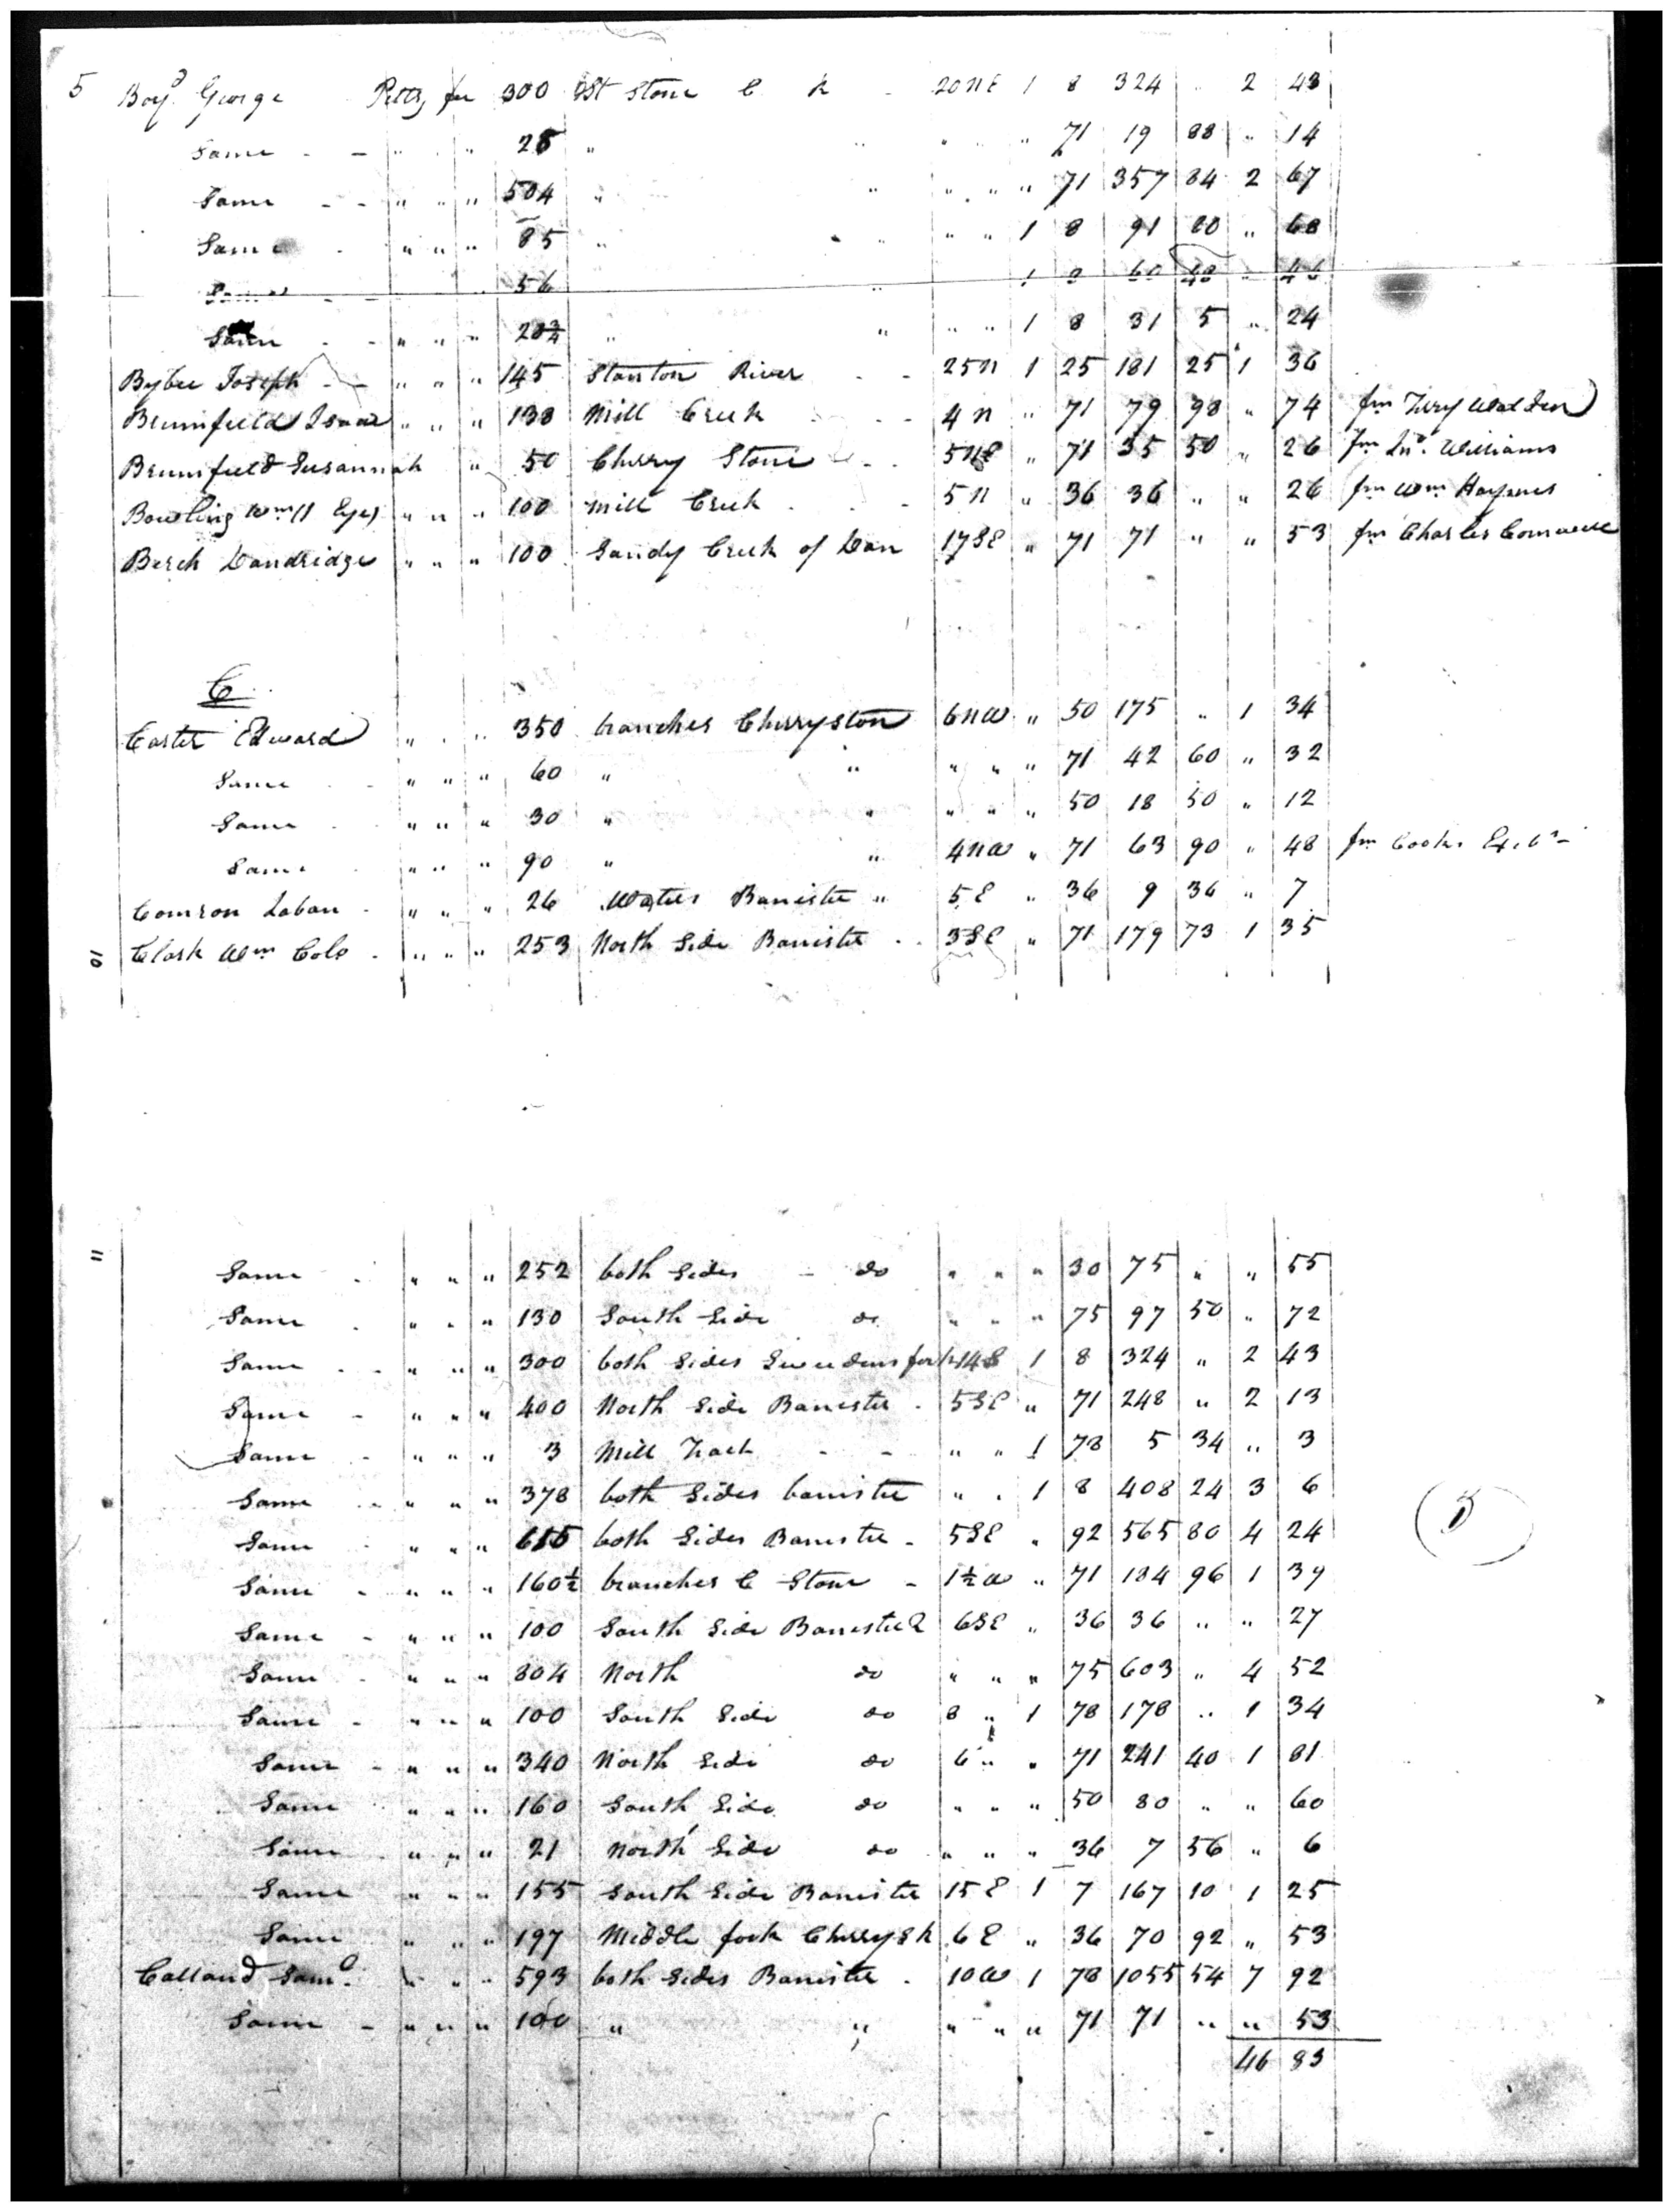 5 Boyd George Pitts fee 300 Est Stone C k - 20 NE 1 8 324 " 2 43
Same - - " " " 28 " " " " " 71 19 88 " 14
Same - - " " " 504 " " " " " 71 357 84 2 67
Same - " " " 85 " " " " 1 8 91 80 " 68
Same - - 56 " 1 8 60 48 " 46
Same - - " " " 28¾ " " " " 1 8 31 5 " 24
Bybee Joseph - - " " " 145 Stanton River - - 25 N 1 25 181 25 1 36
Brumfield Isaac " " " 138 Mill Creek - - 4 N " 71 79 98 " 74 fm
Brumfield Susannah " 50 Cherry Stone - - 5 NE " 71 35 50 " 26 fm Jno. Williams
Bowling Wm (1 Eye) " " " 100 Mill Creek - - 5 N " 36 36 " " 26 fm Wm Haymes
Berch Dandridge " " " 100 Sandy Creek of Dan 17 SE " 71 71 " " 53 fm Charles
C
Carter Edward " " " 350 branches Cherryston 6 NW " 50 175 " 1 34
Same - - " " " 60 " " " " " 71 42 60 " 32
Same - " " " 30 " " " " " 50 18 50 " 12
Same - " " " 90 " " 4 NW " 71 63 90 " 48 fm
Comron Laban - " " " 26 Waters Banister " 5 E " 36 9 36 " 7
10 Clark Wm Cole - " " " 253 North Side Banister - - 5 SE " 71 179 73 1 35
11 Same - " " " 252 both Sides - do " " " 30 75 " " 55
Same - " " " 130 South Side do " " " 75 97 50 " 72
Same - - " " " 300 both Sides fork 14 S 1 8 324 " 2 43
Same - " " " 400 North Side Banister - 5 SE " 71 248 " 2 13
Same - " " " 3 Mill Track - - " " 1 78 5 34 " 3
Same - - " " " 378 both Sides banister " " 1 8 408 24 3 6
Same " " " 615 both Sides Banister - 5 SE " 92 565 80 4 24
Same - " " " 160½ branches C Stone - 1½ W " 71 184 96 1 39
Same - " " " 100 South Side Banister R 6 SE " 36 36 " " 27
Same - " " " 804 North do " " " 75 603 " 4 52
Same - " " " 100 South Side do 8 " 1 78 178 " 1 34
Same - " " " 340 North Side do 6 " " 71 241 40 1 81
Same " " " 160 South Side do " " " 50 80 " " 60
Same " " " 21 North Side do " " " 36 7 56 " 6
Same " " " 155 South Side Banister 15 E 1 7 167 10 1 25
Same " " " 197 Middle fork Cherry Sk 6 E " 36 70 92 " 53
Calland Saml. " " " 593 both Sides Banister - 10 W 1 78 1055 54 7 92
Same - " " " 100 " " " " " 71 71 " " 53
46 83